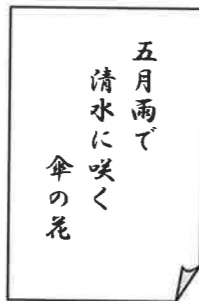 五月雨で
清水に咲く
傘の花